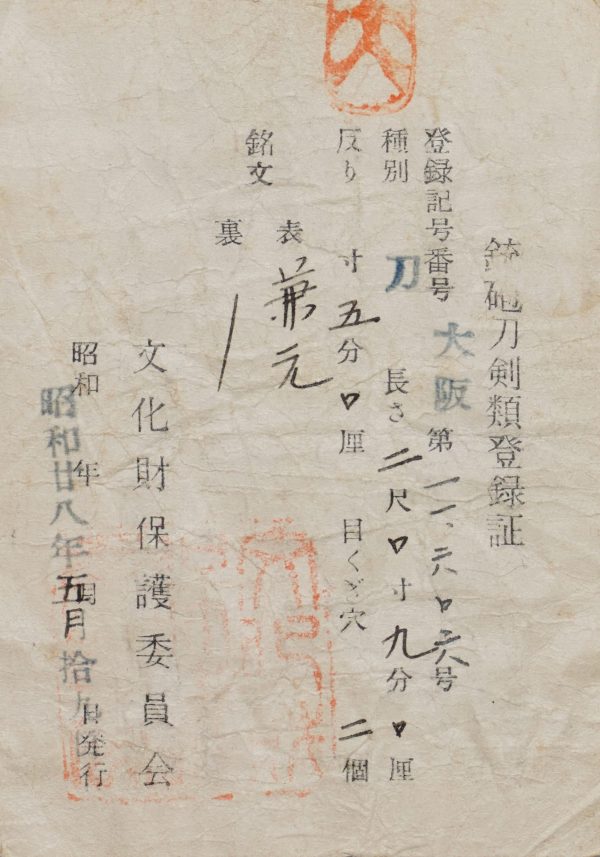 銃砲刀剣類登録証
登録記号番号 大阪 第一一、六口六号
種別 刀 長さ 二尺口寸九分口厘
反り 寸五分口厘 目くぎ穴 二個
銘文
表 兼元
裏
文化財保護委員会
昭和 年 月 日発行
昭和廿八年五月拾九